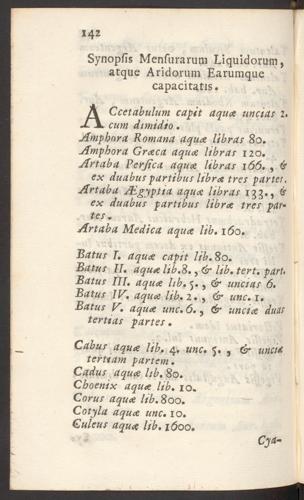 142
Synopsis Mensurarum Liquidorum,
atque Aridorum Earumque
capacitatis.
ACcetabulum capit aquæ uncias 2.
cum dimidio.
Amphora Romana aquæ libras 80.
Amphora Græca aquæ libras 120.
Artaba Persica aquæ libras 166., &
ex duabus partibus libræ tres partes.
Artaba Ægyptia aquæ libras 133., &
ex duabus partibus libræ tres par-
tes.
Artaba Medica aquæ lib. 160.
Batus I. aquæ capit lib. 80.
Batus II. aquæ lib. 8., & lib. tert. part.
Batus III. aquæ lib. 5., & uncias 6.
Batus IV. aquæ lib. 2., & unc. 1.
Batus V. aquæ unc. 6., & unciæ duas
tertias partes.
Cabus aquæ lib. 4. unc. 5., & unciæ
tertiam partem.
Cadus aquæ lib. 80.
Choenix aquæ lib. 10.
Corus aquæ lib. 800.
Cotyla aquæ unc. 10.
Culeus aquæ lib. 1600.
Cya-